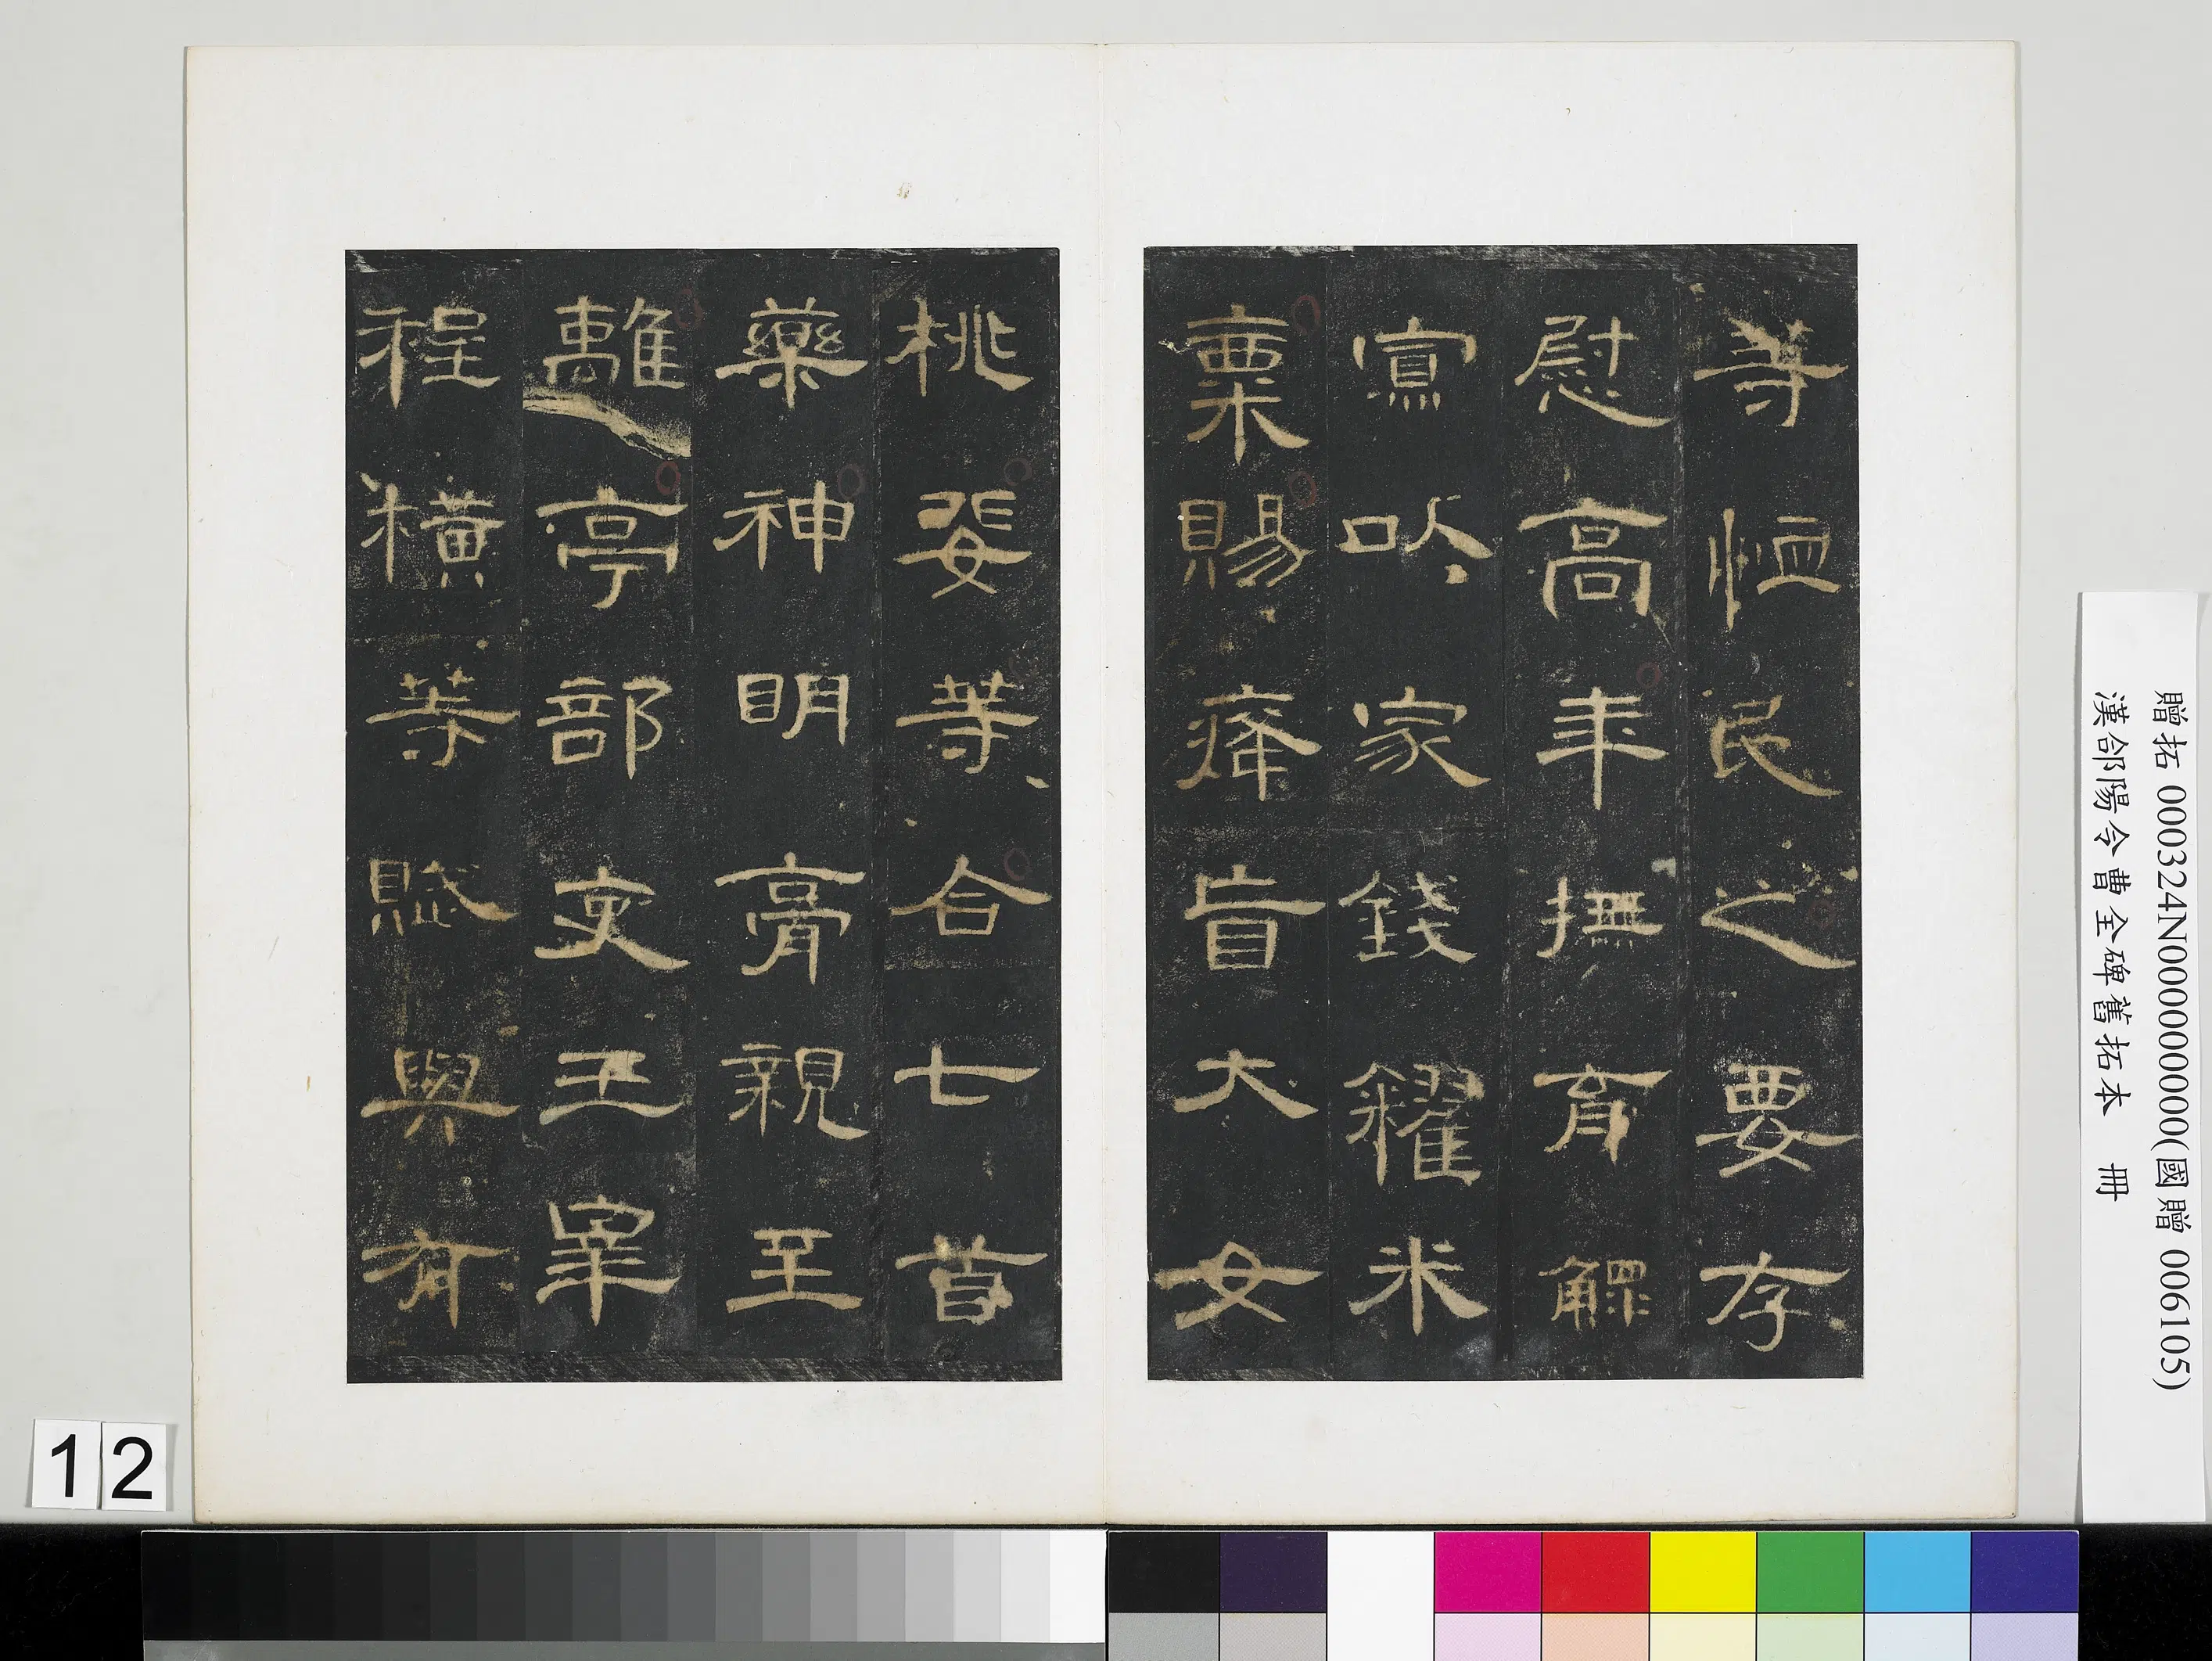 等恤民之要存
慰高年撫育鰥
寡以家錢糴米
粟賜癃盲大女
桃斐等合七首
藥神明膏親至
離亭部吏王宰
程橫等賦與有
贈拓 000324N000000000(國贈 006105)
漢郃陽令曹全碑舊拓本 冊
12